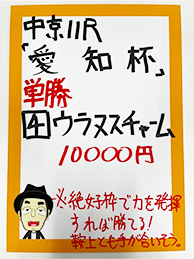 中京11R
「愛知杯」
単勝
4ウラヌスチャーム
10000円
※絶好枠で力を発揮
すれば勝てる!
鞍上とも手が合いそう。